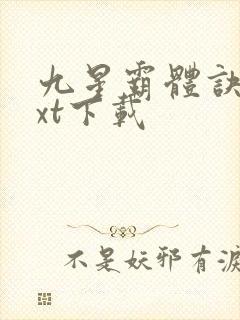 九星霸體訣
xt下載
不是妖邪有淚